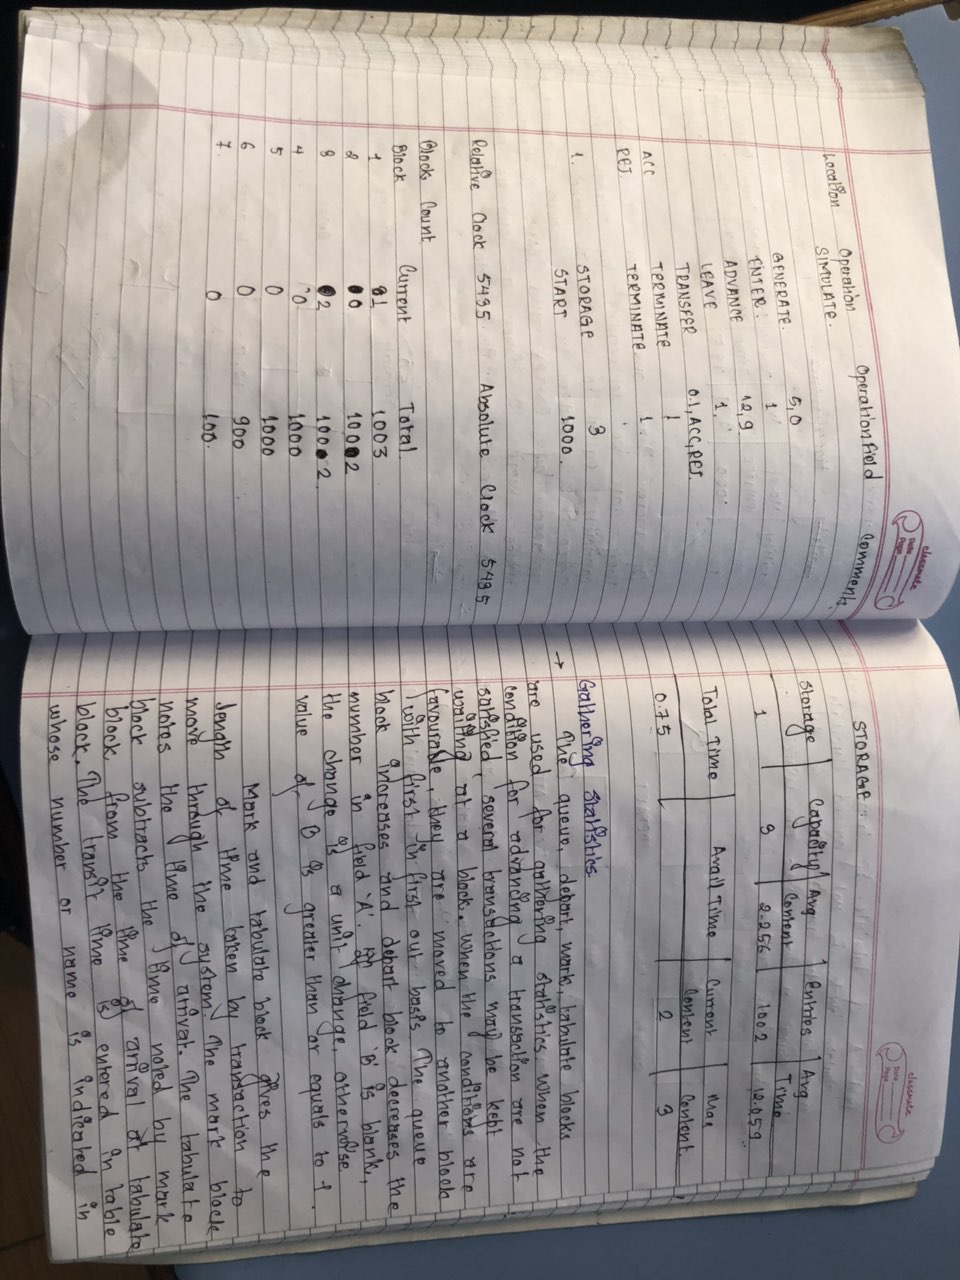 classmate
Date
Page
Location Operation Operation Field Comments
SIMULATE.
GENERATE. 5,0
ENTER. 1
ADVANCE 12,9
LEAVE 1.
TRANSFER 0.1, ACC, REJ.
ACC TERMINATE 1
REJ. TERMINATE 1.
STORAGE 3
1. START 1000.
Relative Clock 5495. Absolute Clock 5495
Block Count
Block Current Total
1 1 1003
2 0 1002
3 2 1002.
4 0 1000
5 0 1000
6 0 900
7. 0 100.
classmate
Date
Page
STORAGE
Storage Capacity Avg Content Entries Avg Time
1 3 2.256 1002 12.059
Total Time Avail Time Current Content Max Content.
0.75 2 3
Gathering Statistics
→ The queue, depart, mark, tabulate blocks
are used for gathering statistics when the
condition for advancing a transaction are not
satisfied, several transactions may be kept
waiting at a block. When the conditions are
favourable, they are moved to another block
with first in first out basis. The queue
block increases and depart block decreases the
number in field 'A'. If field 'B' is blank,
the change is a unit change, otherwise
value of B is greater than or equals to 1.
Mark and tabulate block gives the
length of time taken by transaction to
move through the system. The mark block
notes the time of arrival. The tabulate
block subtracts the time noted by mark
block from the time of arrival at tabulate
block. The transit time is entered in table
whose number or name is indicated in